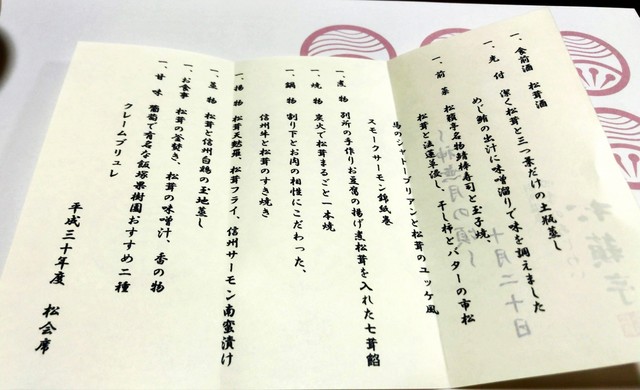 一、食前酒 松茸酒
一、先付 潔く松茸と三つ葉だけの土瓶蒸し
めじ鮪の出汁に味噌溜りで味を調えました
一、前菜 松籟亭名物鯖棒寿司と玉子焼、
松茸と法蓮草浸し、干し柿とバターの市松
馬のシャトーブリアンと松茸のユッケ風
スモークサーモン錦紙巻
一、煮物 別所の手作りお豆腐の揚げ煮松茸を入れた七茸餡
一、焼物 炭火で松茸まるごと一本焼
一、鍋物 割り下とお肉の相性にこだわった、
信州牛と松茸のすき焼き
一、揚物 松茸天麩羅、松茸フライ、信州サーモン南蛮漬け
一、蒸物 松茸と信州白鶏の玉地蒸し
一、お食事 松茸の釜焚き、松茸の味噌汁、香の物
一、甘味 葡萄で有名な飯塚果樹園おすすめ二種
クレームブリュレ
平成三十年度 松会席
十月二十日